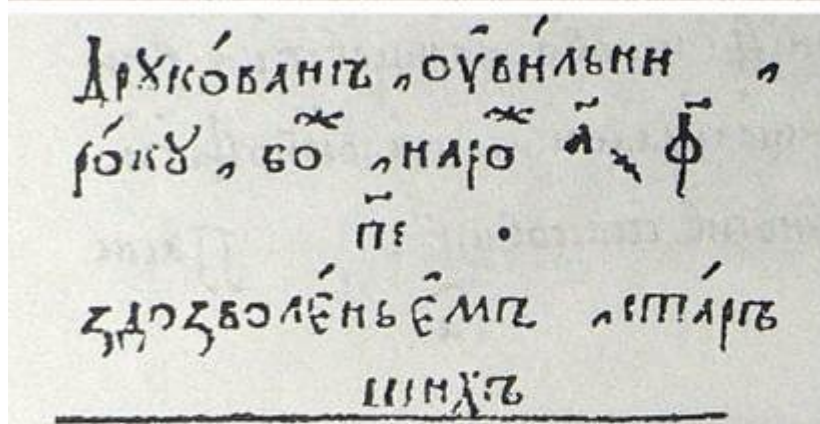 Дрꙋко́ванъ , ѹ҆ви́льни ,
ро́кꙋ , боⷤ , нароⷤ ҂а҃ ф҃
п҃е .
здозволе́ньє̑мъ , ста́ръ
шихъ